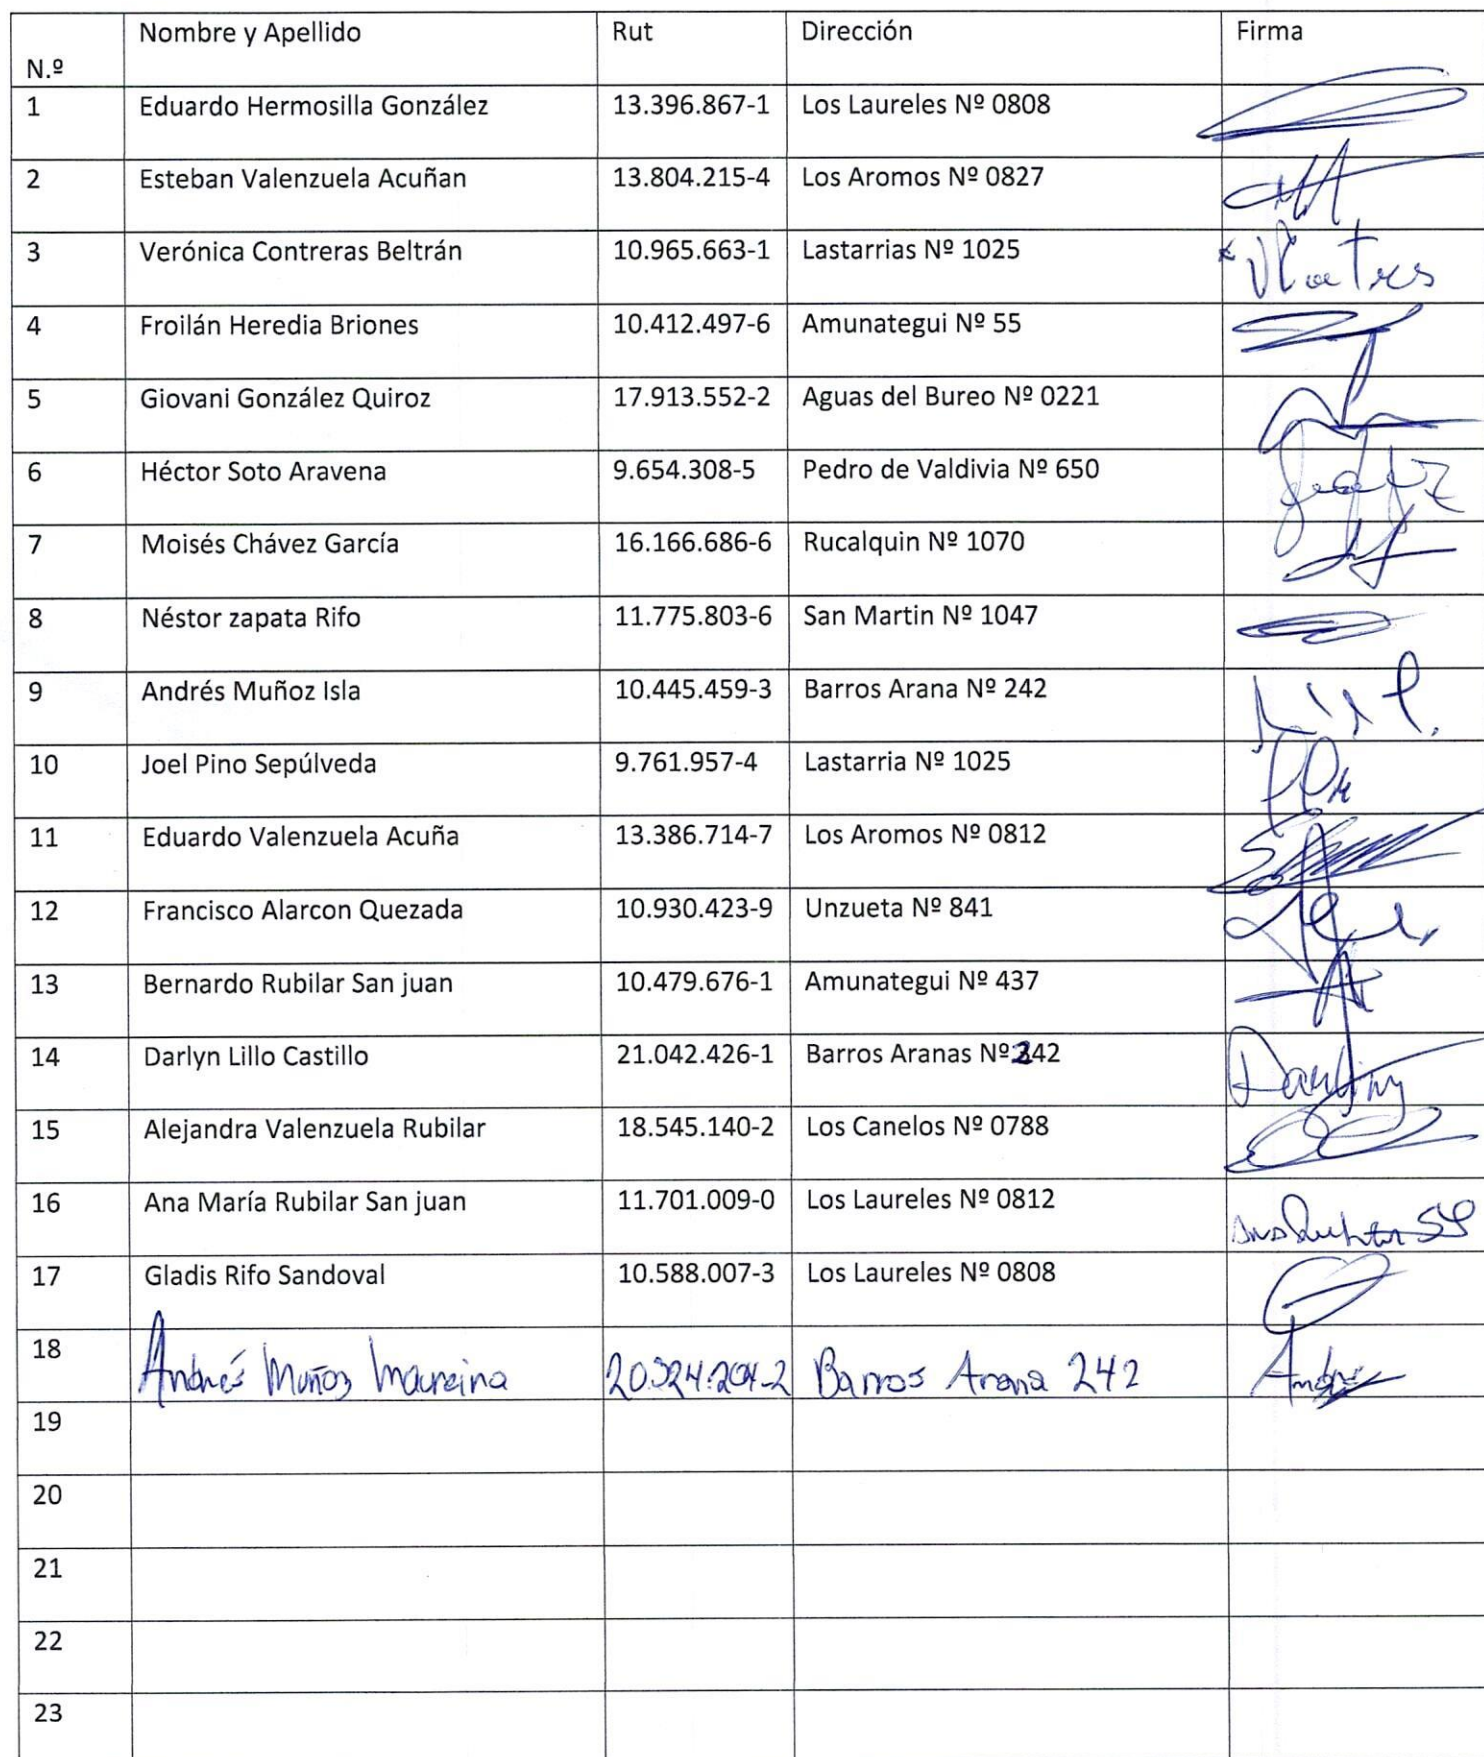 N.º Nombre y Apellido Rut Dirección Firma
1 Eduardo Hermosilla González 13.396.867-1 Los Laureles Nº 0808
2 Esteban Valenzuela Acuñan 13.804.215-4 Los Aromos Nº 0827
3 Verónica Contreras Beltrán 10.965.663-1 Lastarrias Nº 1025
4 Froilán Heredia Briones 10.412.497-6 Amunategui Nº 55
5 Giovani González Quiroz 17.913.552-2 Aguas del Bureo Nº 0221
6 Héctor Soto Aravena 9.654.308-5 Pedro de Valdivia Nº 650
7 Moisés Chávez García 16.166.686-6 Rucalquin Nº 1070
8 Néstor zapata Rifo 11.775.803-6 San Martin Nº 1047
9 Andrés Muñoz Isla 10.445.459-3 Barros Arana Nº 242
10 Joel Pino Sepúlveda 9.761.957-4 Lastarria Nº 1025
11 Eduardo Valenzuela Acuña 13.386.714-7 Los Aromos Nº 0812
12 Francisco Alarcon Quezada 10.930.423-9 Unzueta Nº 841
13 Bernardo Rubilar San juan 10.479.676-1 Amunategui Nº 437
14 Darlyn Lillo Castillo 21.042.426-1 Barros Aranas Nº 242
15 Alejandra Valenzuela Rubilar 18.545.140-2 Los Canelos Nº 0788
16 Ana María Rubilar San juan 11.701.009-0 Los Laureles Nº 0812
17 Gladis Rifo Sandoval 10.588.007-3 Los Laureles Nº 0808
18 Andrés Muñoz Maureina 20.324.204-2 Barros Arana 242
19
20
21
22
23